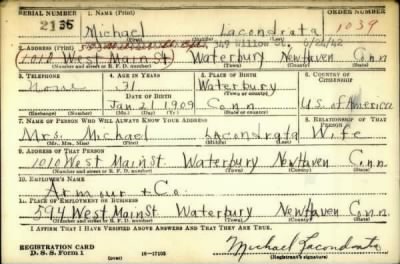 SERIAL NUMBER 1. NAME (Print) ORDER NUMBER
2135 Michael Lacondrata 1039
(First) (Middle) (Last)
2. ADDRESS (Print) 349 Willow St. 6/24/42
1010 West Main St Waterbury New Haven Conn
(Number and street or R. F. D. number) (Town) (County) (State)
3. TELEPHONE 4. AGE IN YEARS 5. PLACE OF BIRTH 6. COUNTRY OF CITIZENSHIP
None 31 Waterbury
DATE OF BIRTH (Town or county)
Jan 21 1909 Conn. U.S. of America
(Exchange) (Number) (Mo.) (Day) (Yr.) (State or country)
7. NAME OF PERSON WHO WILL ALWAYS KNOW YOUR ADDRESS 8. RELATIONSHIP OF THAT PERSON
Mrs. Michael Lacondrata Wife
(Mr., Mrs., Miss) (First) (Middle) (Last)
9. ADDRESS OF THAT PERSON
1010 West Main St. Waterbury New Haven Conn.
(Number and street or R. F. D. number) (Town) (County) (State)
10. EMPLOYER'S NAME
Armour + Co.
11. PLACE OF EMPLOYMENT OR BUSINESS
594 West Main St. Waterbury New Haven Conn.
(Number and street or R. F. D. number) (Town) (County) (State)
I AFFIRM THAT I HAVE VERIFIED ABOVE ANSWERS AND THAT THEY ARE TRUE.
REGISTRATION CARD
D. S. S. Form 1 (over) 16—17105 Michael Lacondrata
(Registrant's signature)